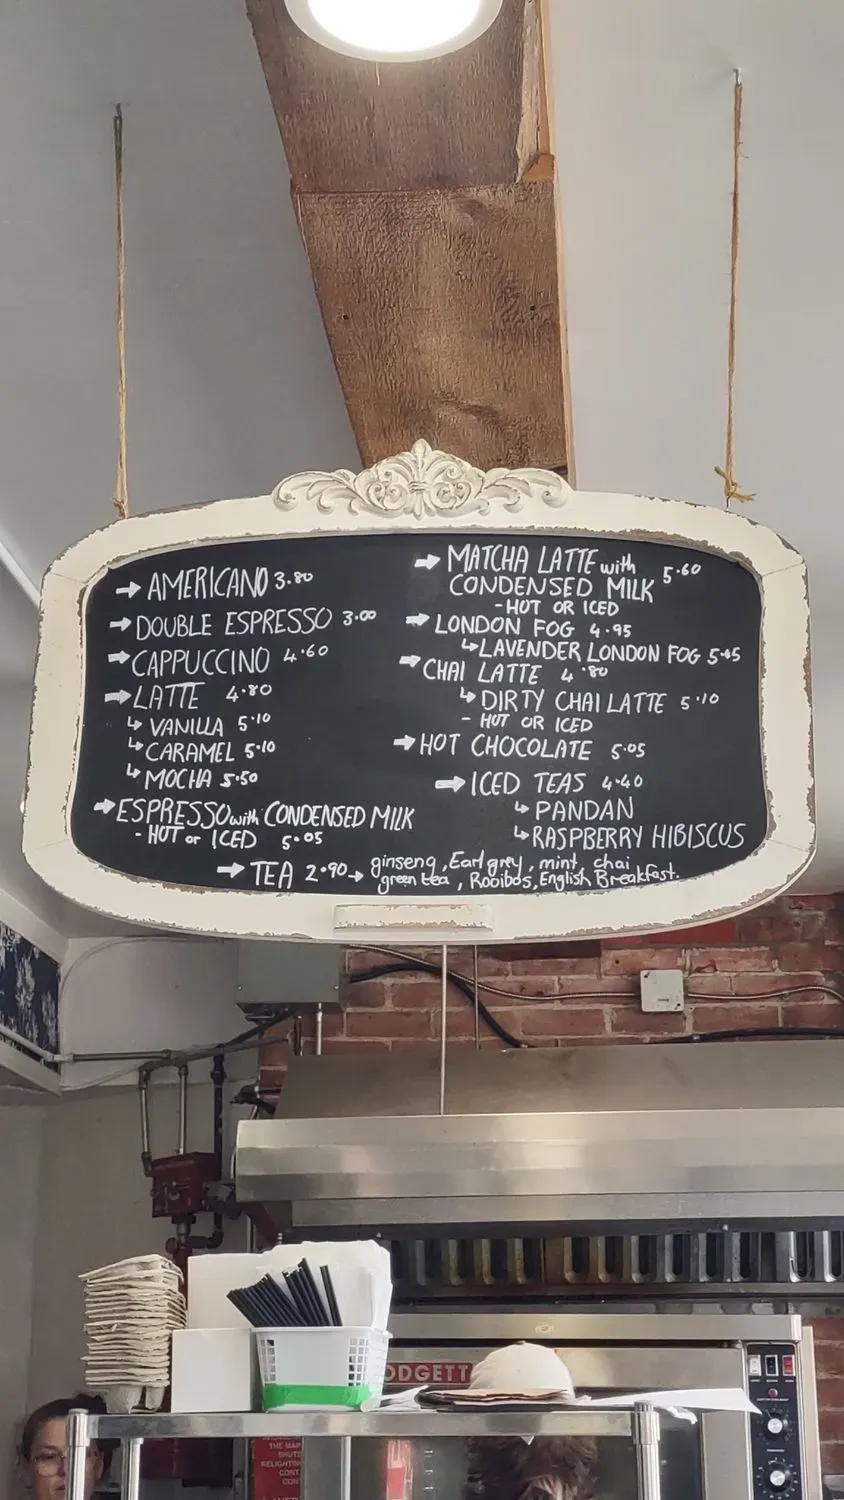 → AMERICANO 3.80
→ DOUBLE ESPRESSO 3.00
→ CAPPUCCINO 4.60
→ LATTE 4.80
↳ VANILLA 5.10
↳ CARAMEL 5.10
↳ MOCHA 5.50
→ ESPRESSO with CONDENSED MILK
- HOT or ICED 5.05
→ MATCHA LATTE with
CONDENSED MILK 5.60
- HOT OR ICED
→ LONDON FOG 4.95
↳ LAVENDER LONDON FOG 5.45
→ CHAI LATTE 4.80
↳ DIRTY CHAI LATTE 5.10
- HOT OR ICED
→ HOT CHOCOLATE 5.05
→ ICED TEAS 4.40
↳ PANDAN
↳ RASPBERRY HIBISCUS
→ TEA 2.90 → ginseng, Earl grey, mint, chai
green tea, Rooibos, English Breakfast.
ODGETT